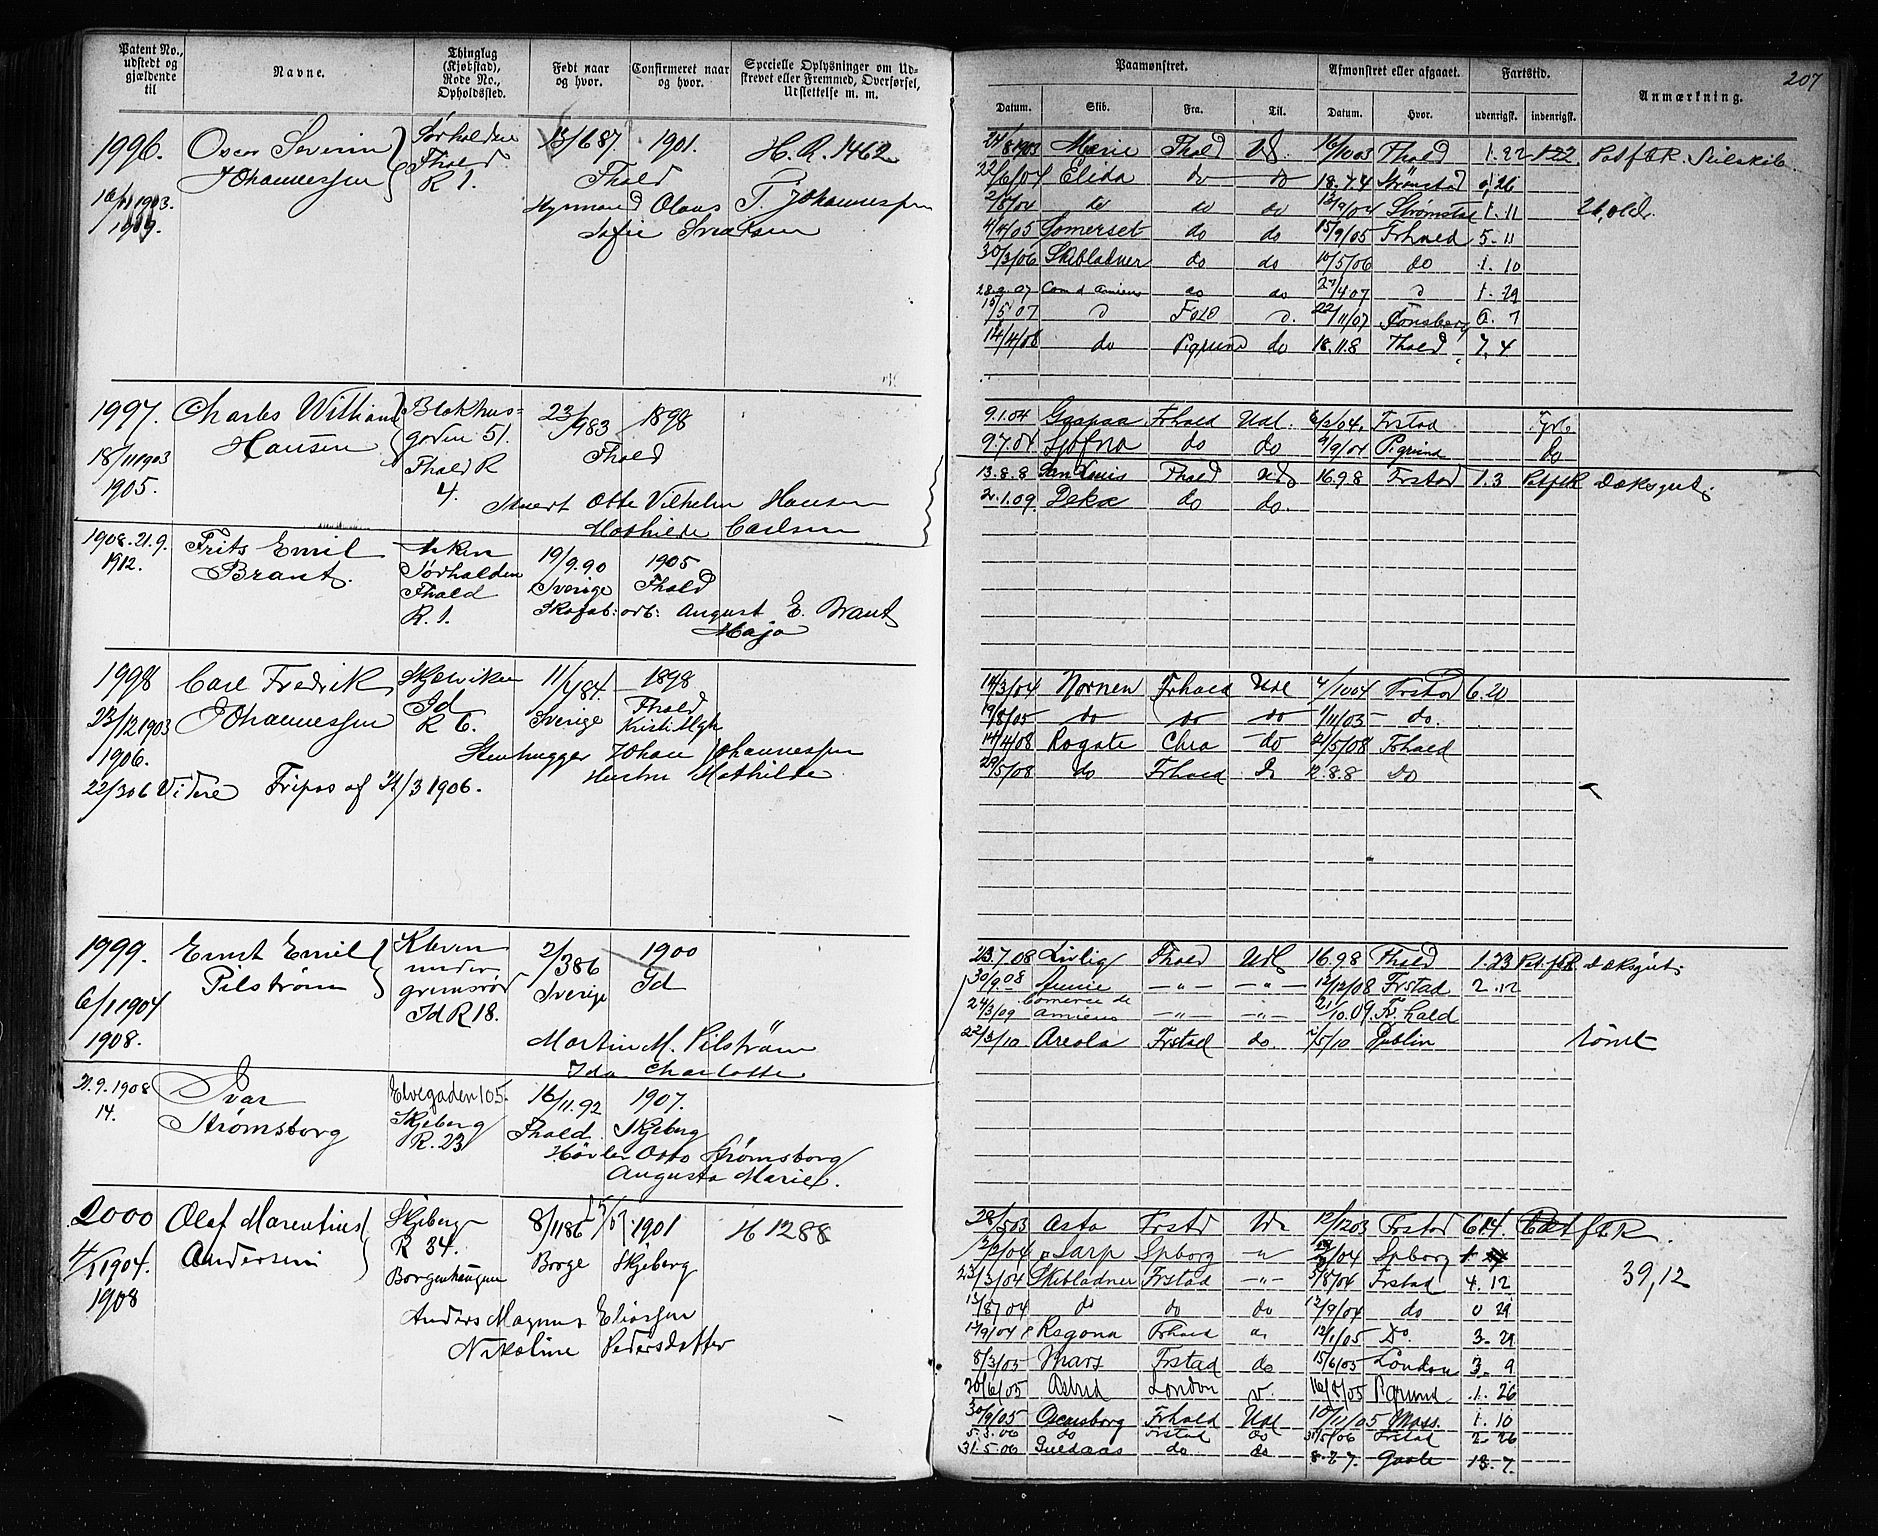 Patent No., udstedt og gjældende til
Navne.
Thinglag (Kjøbstad), Rode No., Opholdssted.
Født naar og hvor.
Confirmeret naar og hvor.
Specielle Oplysninger om Udskrevet eller Fremmed, Overførsel, Udslettelse m. m.
1996. Oscar Severin Sørhalden 13/6 87 1901. H. R. 1462
Johannessen Fhald Fhald
R 1.
1903.
1909. Olaus T. Johannessen
Sofie
1997. Charles William Blokhus- 23/ 1898
Hansen gaden 51. Fhald
18/11 1903 Fhald R
1905. 4. Otto Vilhelm Hansen
Mathilde Carlsen
1908. 21. 9. Frits Emil 19/9. 90 1905
1912. Brant. Sørhalden Sverige Fhald
Fhald Skofab: arb: August E. Brant
R. 1. Maja
1998 Carl Fredrik 11/ 84. 1898
23/12 1903 Johannessen Id Sverige Fhald
R 6.
1906. Stenhugger Johan Johannessen
Hustru Mathilde
22/3 06 Videre Fripas af 21/3 1906.
1999. Ernst Emil Kleven 2/3 86 1900
Pilstrøm under Sverige Id
6/1 1904 grimsrød
Id R 18.
1908. Martin M. Pilstrøm
Ida Charlotte
21. 9. 1908 Ivar Elvegaden 105. 16/11. 92 1907.
14. Strømsborg Skjeberg Fhald. Skjeberg
R. 23 Høvler Otto Strømsborg
Augusta Marie
2000 Olaf Marentius Skjeberg 8/1 86 1901 H 1288
Andersen R 34. Borge Skjeberg
4/1 1904. Borgenhaugen
1908 Anders Magnus Eliassen
Nikoline Pedersdatter
207
Paamønstret.
Afmønstret eller afgaaet.
Fartstid.
Anmærkning.
Datum. Skib. Fra. Til. Datum. Hvor. udenrigsk. indenrigsk.
Marie Fhald Ud. 16/10 03 Fhald 1. 22
22/6 04 Elida do do 18. 7. 4 Strømstad 26
2/8 04 do do do 12/9 04 Strømstad 1. 11
4/4 05 Somerset do do 15/9 05 Frhald 5. 11
30/3 06 Skibladner do do 10/5 06 do 1. 10
28. 2. 07 do do 27/4 07 1. 29
15/5 07 22/11 07 Tønsberg 6. 7
14/4 08 do Pgrund do 18. 11. 8 Fhald 7. 4
9. 1. 04 Frhald Udl. 6/2 04. Frstad
9. 7. 04 do do /9/04 Pgrund do
13. 8. 8 San Louis Fhald 16. 9. 8 Frstad 1. 3 Dæksgut
2. 1. 09 Deka do do.
14/3 04 Nornen Frhald Udl 4/10 04 Frstad 6. 20
19/8 05 do do do 1/11 05 do.
14/4 08 Rogate Chra do 21/5 08 Frhald
29/5 08 do Frhald 2. 8. 8 Do
23. 7. 08 Livlig Fhald Udl 16. 9. 8 Fhald 1. 23 Dæksgut
30/9. 08 — „ — — „ — 12/12/08 Frstad 2. 12
24/3/09 Comerse de Amiens — „ — — „ — 21/10. 09. Fr. hald
22/3/10 Areola Frstad do. 2/5/10 Dublin Rømt
28/5 03 Asta Frstd 12/12 03 Frstad 6. 14
Sarp Spborg „ /04 Spborg
23/3/04 Skibladner Frstad — „ — 5/8/04 Frstad 4. 12 39,12
13/8 04 do do do 12/9/04 do 0 29
13/9/04 Ragona Frhald 12/1/05 Do. 3. 29
8/3/05 Mars Frstad do 15/6/05 London 3. 9
20/6/05 Astrid London 16/8/05 Pgrund 1. 26
30/9/05 Oscarsborg Frhald Udl 10/11/05 Moss. 1. 10
5. 3. 06 do Frstad do 31/5/06 Frstad 2. 26
31. 5. 06 Guldaas do do 8. 2. 7. 18. 7.